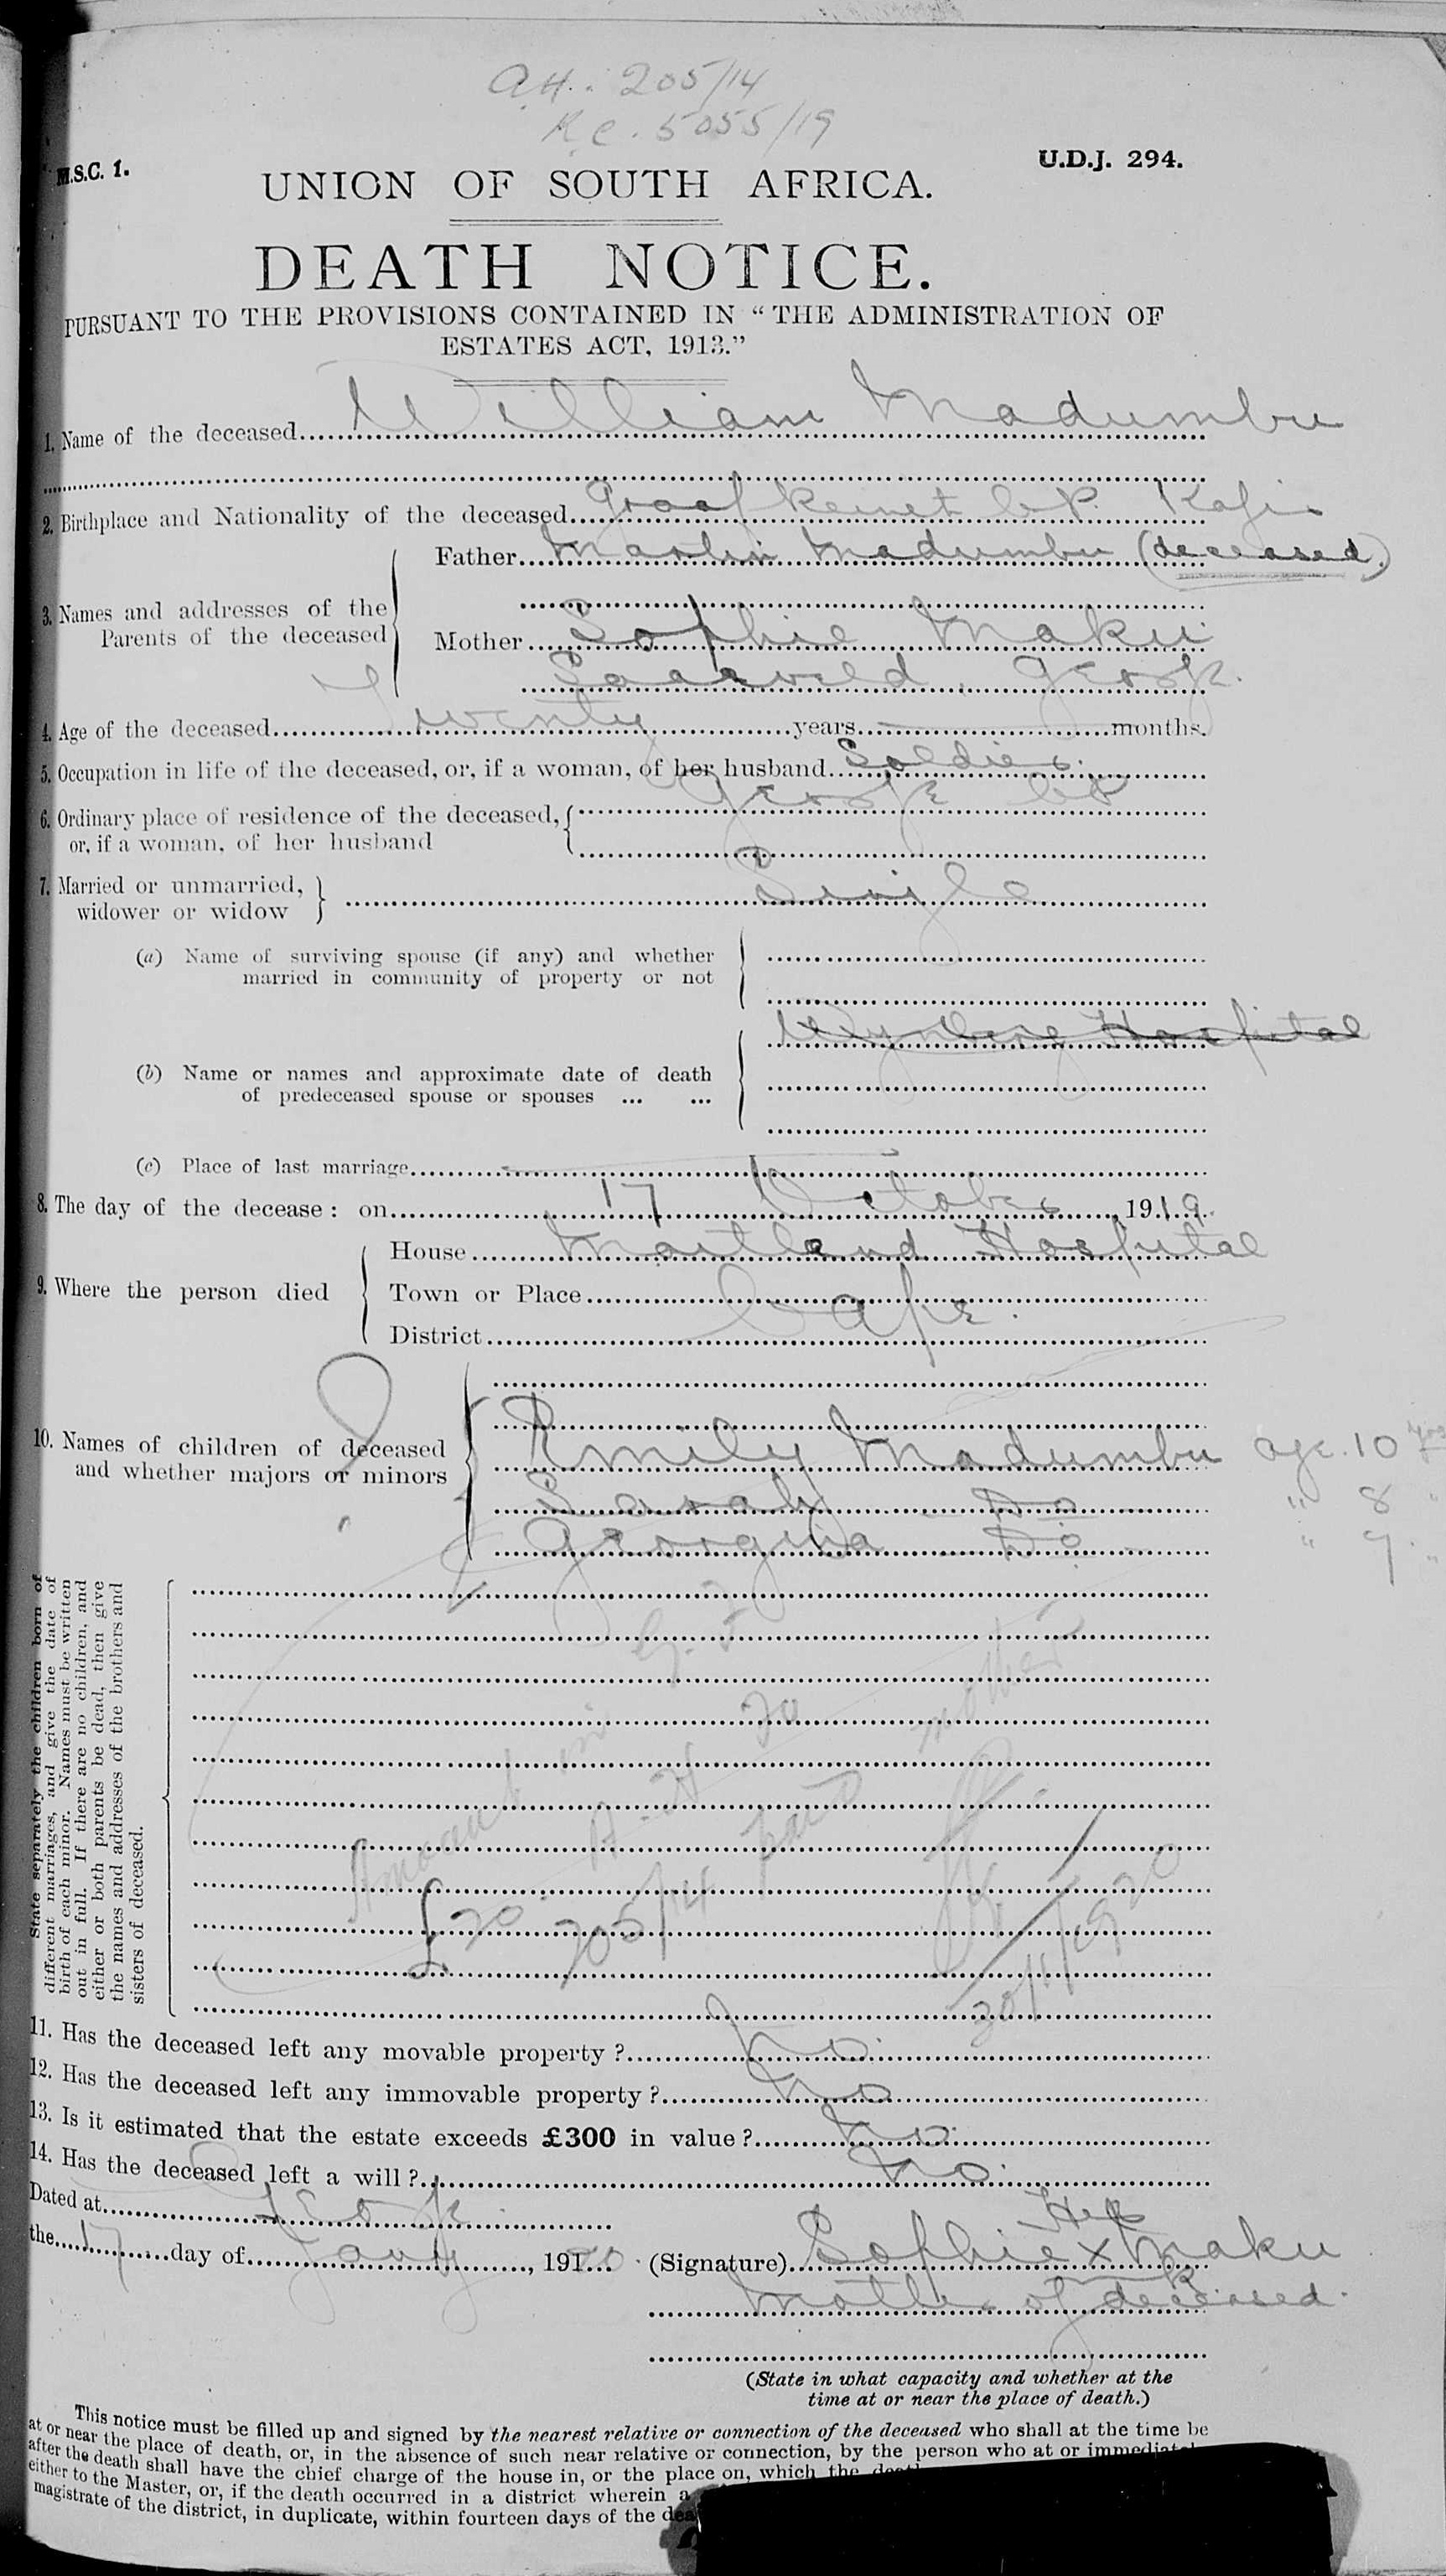 A.H. 205/14
R.C. 5055/19
M.S.C. 1.
U.D.J. 294.
UNION OF SOUTH AFRICA.
DEATH NOTICE.
PURSUANT TO THE PROVISIONS CONTAINED IN “THE ADMINISTRATION OF
ESTATES ACT, 1913.”
1. Name of the deceased William Madumbu
2. Birthplace and Nationality of the deceased Graaf Reinet C.P. Kafir
3. Names and addresses of the Parents of the deceased
Father Martin Madumbu (deceased)
Mother Sophie Maku
George.
4. Age of the deceased Twenty years months.
5. Occupation in life of the deceased, or, if a woman, of her husband Soldier.
6. Ordinary place of residence of the deceased, or, if a woman, of her husband
George CP
7. Married or unmarried, widower or widow Single
(a) Name of surviving spouse (if any) and whether
married in community of property or not
Wynberg Hospital
(b) Name or names and approximate date of death
of predeceased spouse or spouses ... ...
(c) Place of last marriage
8. The day of the decease: on 17 October, 1919.
9. Where the person died
House Maitland Hospital
Town or Place Cape.
District
10. Names of children of deceased
and whether majors or minors
Emily Madumbu age 10 yrs
Sarah Do " 8 "
Georgina Do " 7 "
State separately the children born of
different marriages, and give the date of
birth of each minor. Names must be written
out in full. If there are no children, and
either or both parents be dead, then give
the names and addresses of the brothers and
sisters of deceased.
Amount in G. F.
£20 A.H. 205/14 paid to mother
20/1/1920
11. Has the deceased left any movable property? No.
12. Has the deceased left any immovable property? No
13. Is it estimated that the estate exceeds £300 in value? No.
14. Has the deceased left a will? No.
Dated at George
the 17 day of Jany, 191 20.
(Signature) Sophie Her x Maku
Mother of deceased.
(State in what capacity and whether at the
time at or near the place of death.)
This notice must be filled up and signed by the nearest relative or connection of the deceased who shall at the time be
at or near the place of death, or, in the absence of such near relative or connection, by the person who at or immediat
after the death shall have the chief charge of the house in, or the place on, which the
either to the Master, or, if the death occurred in a district wherein a
magistrate of the district, in duplicate, within fourteen days of the